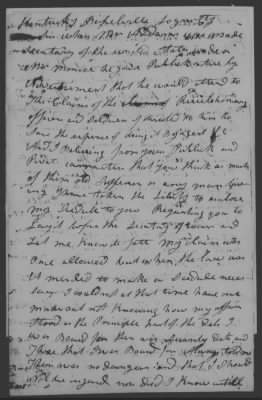 Kentucky Russelville Logan Cty
Sir when Mr Addams was made
Secretary of the united States under
Mr Monroe he gave Publick notice by
advertisement that he would attend to
the Claims of the Revolutionary
officers and Soldiers if directed to him to
Save the expence of being &c
And Believing from your Publick and
Privat carracter that you think as much
of them as or any man livi
ng I have taken the Liberty to enclose
my Sedule to you Requesting you to
Lay it before the Secretary of war and
Let me know its fate my Claim was
one allowed but when the law was
A mended to make a Scedule neces
sary I could not at that time have one
made out not knowing how my affairs
stood as the Principle part of the debts I
was Bound for then was Security debts and
Those that I was Bound for told me
There was no danger and that I should
not be injured nor did I know untill